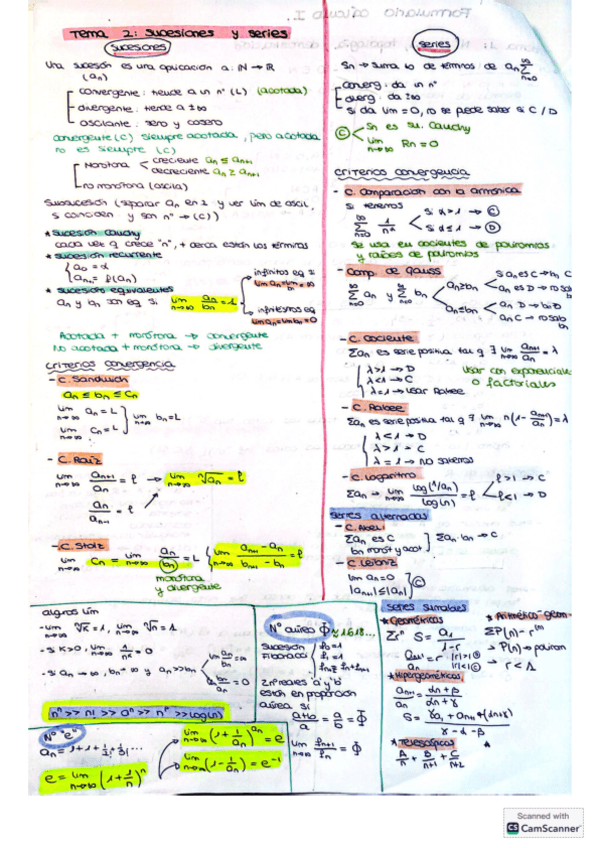 Tema 2: sucesiones y series
sucesiones
Una sucesión es una aplicación a: ℕ → ℝ
(an)
convergente: tiende a un nº (L) (acotada)
divergente: tiende a ±∞
oscilante: seno y coseno
convergente (C) siempre acotada, pero acotada
no es siempre (C)
Monótona
creciente an ≤ an+1
decreciente an ≥ an+1
no monótona (oscila)
Subsucesión (separar an en 2 y ver lím de ascil,
s coinciden y son nº → (C))
* sucesión cauchy
cada vez q crece "n", + cerca están los términos
* sucesión recurrente
a0 = α
an+1 = f(an)
* sucesión equivalentes
an y bn son eq si lim n→∞ an/bn = 1
infinitos eq si
lim an = lim bn = ∞
infinitésimos eq
lim an = lim bn = 0
Acotada + monótona → convergente
No acotada + monótona → divergente
criterios convergencia
- C. Sandwich
an ≤ bn ≤ cn
lim n→∞ an = L
lim n→∞ cn = L
lim n→∞ bn = L
- C. Raíz
lim n→∞ an+1/an = ℓ → lim n→∞ ⁿ√an = ℓ
an/an-1 = ℓ
- C. Stolz
lim n→∞ cn = lim n→∞ an/bn = L { lim n→∞ an+1 - an / bn+1 - bn = ℓ
monótona
y divergente
series
Sn → suma de términos de an ∑ n=0 ∞
converg: da un nº
diverg: da ±∞
si da lim = 0, no se puede saber si C / D
(C)
Sn es su. Cauchy
lim n→∞ Rn = 0
criterios convergencia
- C. Comparación con la armónica
si tenemos
∑ n=0 ∞ 1/n^α
si α > 1 → (C)
si α ≤ 1 → (D)
se usa en cocientes de polinomios
y raíces de polinomios
- Comp. de gauss
∑ n=0 ∞ an y ∑ n=0 ∞ bn
an ≥ bn
s an es C → bn C
an es D → no sab bn
an ≤ bn
an D → bn D
an C → no sab bn
- C. Cociente
∑an es serie positiva tal q ∃ lim n→∞ an+1/an = λ
λ > 1 → D
λ < 1 → C
λ = 1 → usar Raabee
Usar con exponenciales
o factoriales
- C. Raabee
∑an es serie positiva tal q ∃ lim n→∞ n(1 - an+1/an) = λ
λ < 1 → D
λ > 1 → C
λ = 1 → no sabemos
- C. Logaritmo
∑an → lim n→∞ log(1/an)/log(n) = ℓ
ℓ > 1 → C
ℓ < 1 → D
series alternadas
- C. Abel
∑an es C
bn monót y acot
∑an · bn → C
- C. Leibniz
lim an = 0
|an+1| ≤ |an|
(C)
algnos lím
- lim n→∞ ⁿ√K = 1, lim n→∞ ⁿ√n = 1
- si K > 0, lim n→∞ 1/n^K = 0
- si an → ∞, bn → ∞ y an >> bn
lim an/bn = ∞
lim bn/an = 0
nⁿ >> n! >> aⁿ >> n^p >> log(n)
Nº "e"
an = 1 + 1 + 1/2! + 1/3! ...
e = lim n→∞ (1 + 1/n)ⁿ
lim n→∞ (1 + 1/an)^an = e
lim n→∞ (1 - 1/an)^an = e⁻¹
Nº aúreo Φ ≈ 1'618...
Sucesión
Fibonacci
f0 = 1
f1 = 1
2 nº reales 'a' y 'b'
están en proporción
aúrea si
a+b/a = a/b = Φ
lim n→∞ fn+1/fn = Φ
series sumables
* Geométricas
∑rⁿ S = a1/1-r
an+1/an = r
|r| > 1 (D)
|r| < 1 (C)
* Hipergeométricas
an+1/an = αn + β / αn + γ
γ - α - β
* Aritmético-geom
∑P(n) · rⁿ
→ P(n) → polinom
→ r < 1
* Telescópicas
A/n + B/n+1 + C/n+2
Scanned with
CS CamScanner